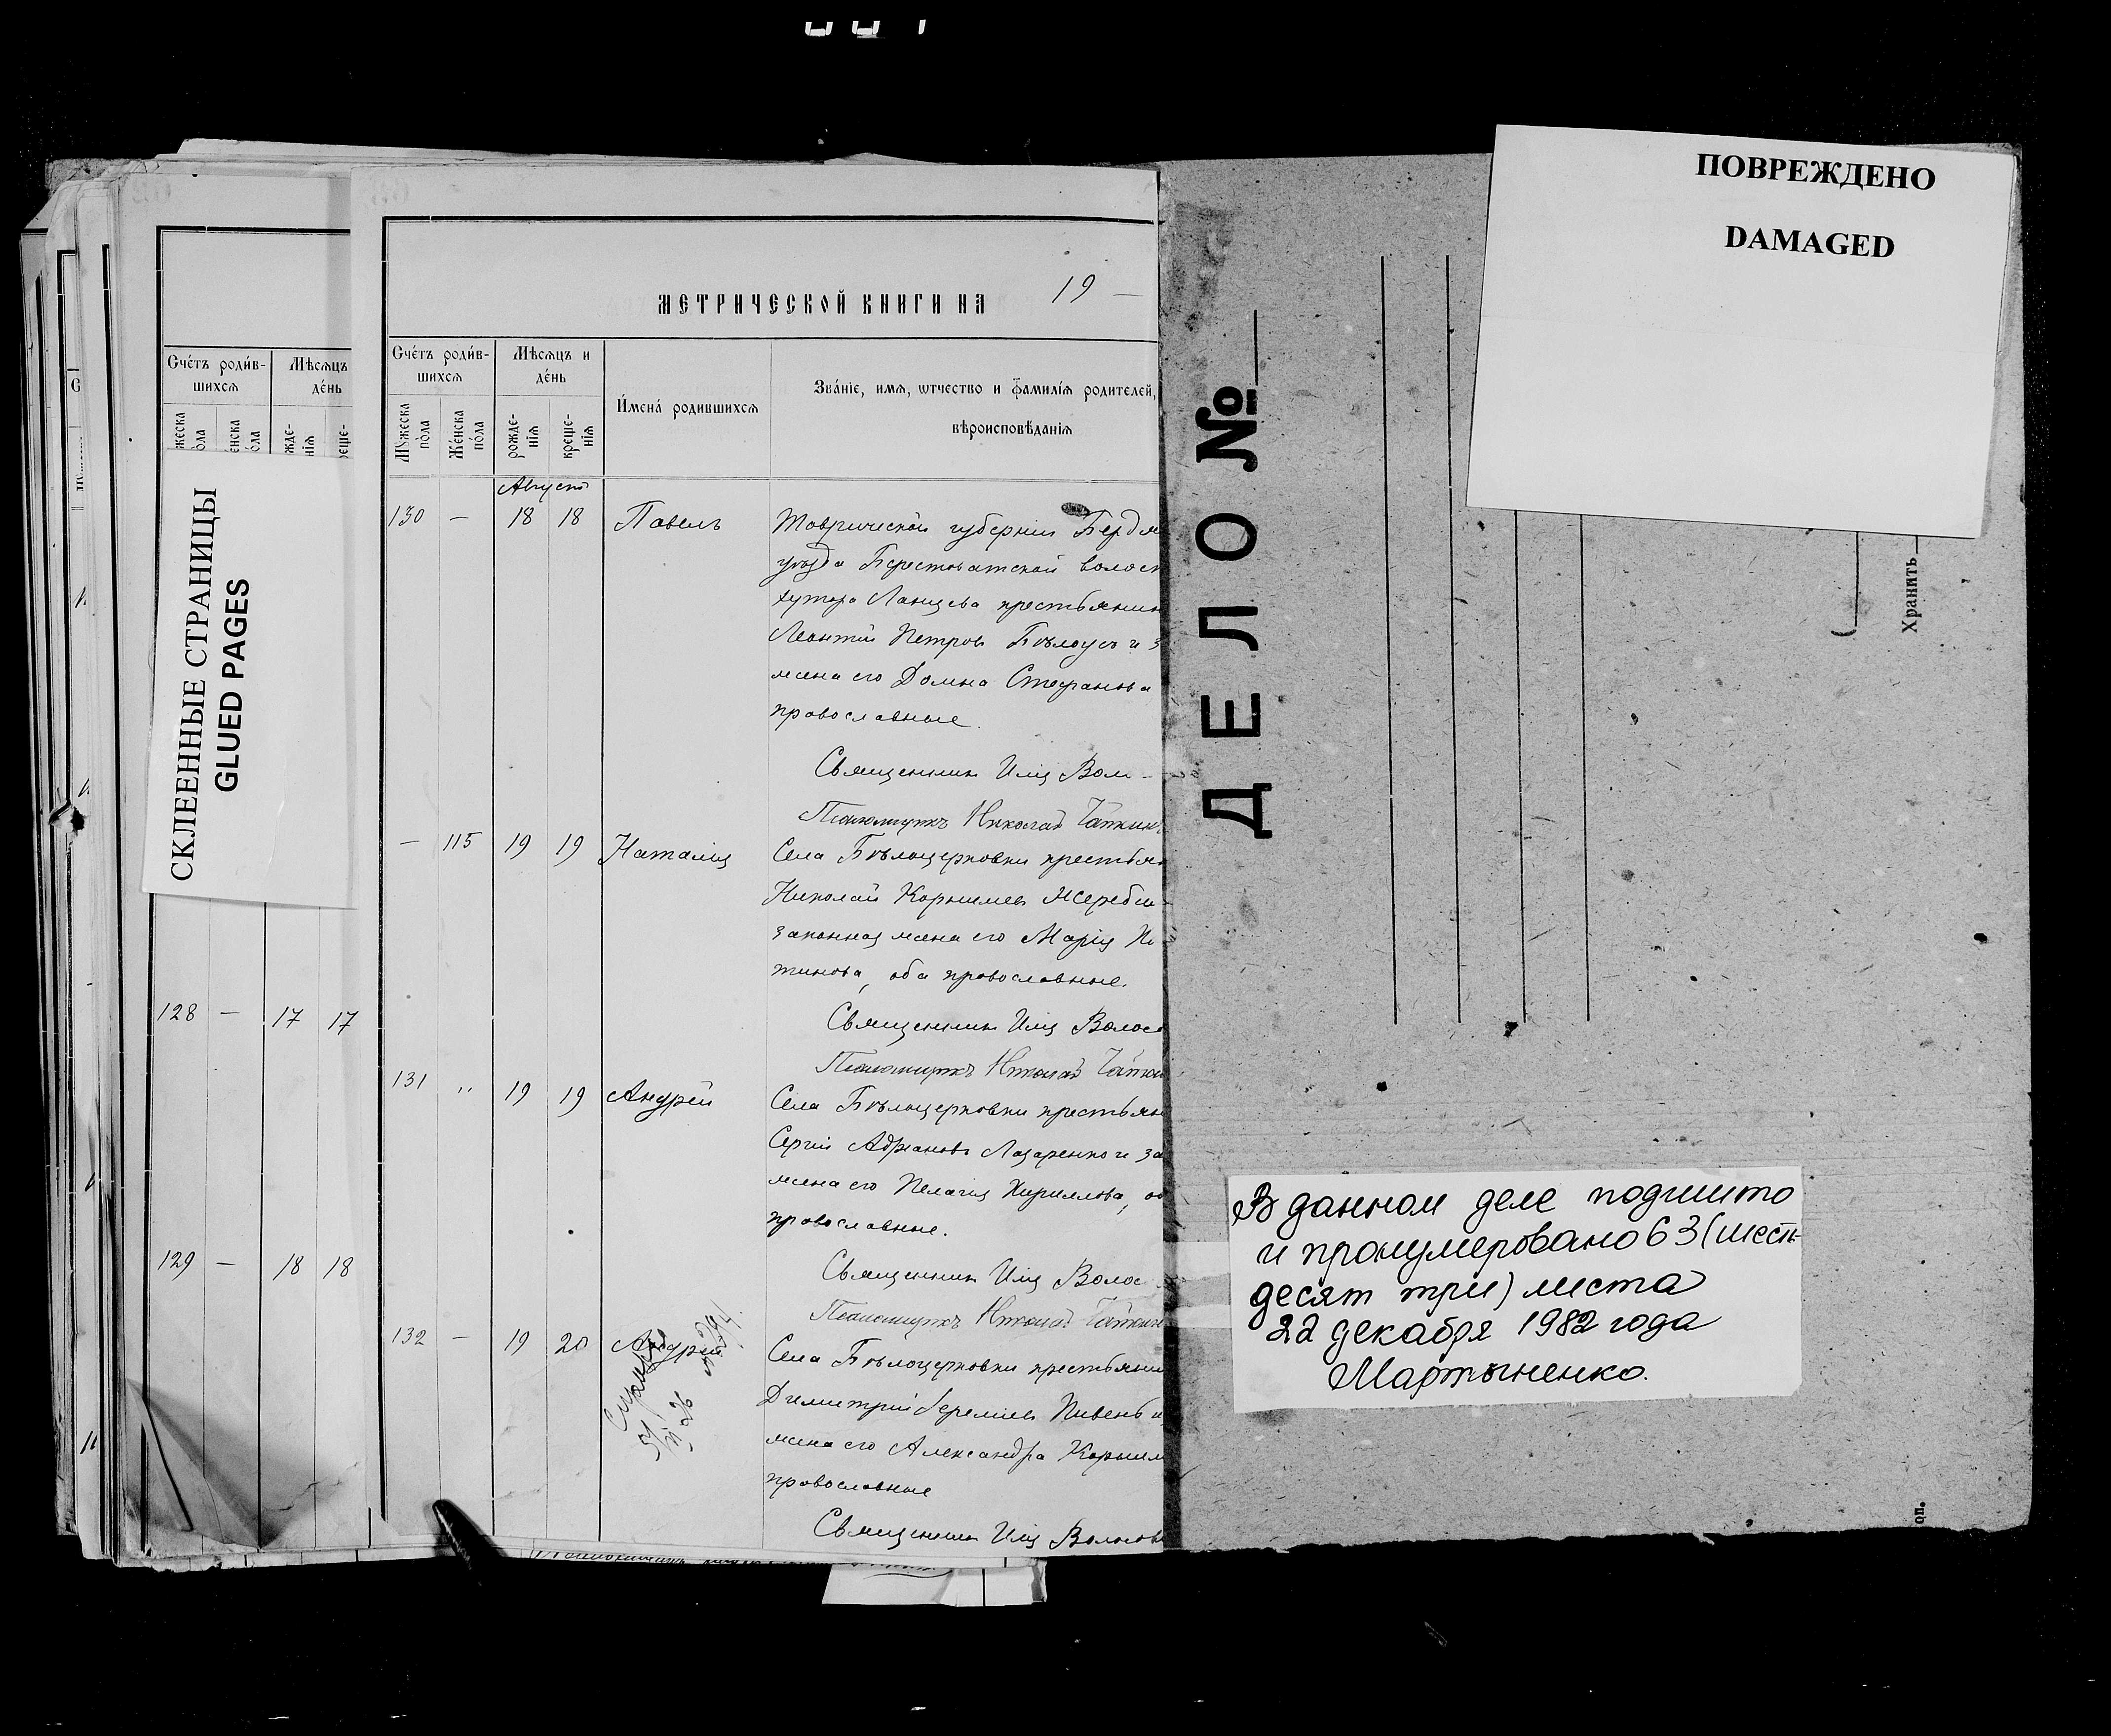 ПОВРЕЖДЕНО
DAMAGED
СКЛЕЕННЫЕ СТРАНИЦЫ
GLUED PAGES
Счетъ родив-
шихся
Мѣсяцъ
день
128 — 17 17
129 — 18 18
МЕТРИЧЕСКОЙ КНИГИ НА 19 —
Счетъ родив-
шихся
Мужеска
пола
Женска
пола
Мѣсяцъ и
день
рожде-
нія
креще-
нія
Имена родившихся
Званіе, имя, отчество и фамилія родителей,
вѣроисповѣданія
Августъ
130 — 18 18 Павелъ
Таврической губерніи Бердя
уѣзда Берестоватской волост
хутора Ланцева крестьянин
Леонтій Петровъ Бѣлоусъ и з
жена его Домна Стефанова
православные.
Священникъ Илія Воло
Псаломщикъ Николай
— 115 19 19 Наталія
Села Бѣлоцерковки крестьян
Николай Корниліевъ Жереб
законная жена его Марія
тинова, оба православные.
Священникъ Илія Волос
Псаломщикъ Николай
131 " 19 19 Андрей
Села Бѣлоцерковки крестьян
Сергій Адріановъ Лазаренко и за
жена его Пелагія Кириллова, об
православные.
Священникъ Илія Волос
Псаломщикъ Николай
132 — 19 20 Андрей
Села Бѣлоцерковки крестьянин
Димитрій Іереміевъ Пивень и
жена его Александра Корнил
православные
Священникъ Илія Волосов
ДЕЛО №
Хранить
оп.
В данном деле подшито
и пронумеровано 63 (шесть-
десят три) листа
22 декабря 1982 года
Мартыненко.